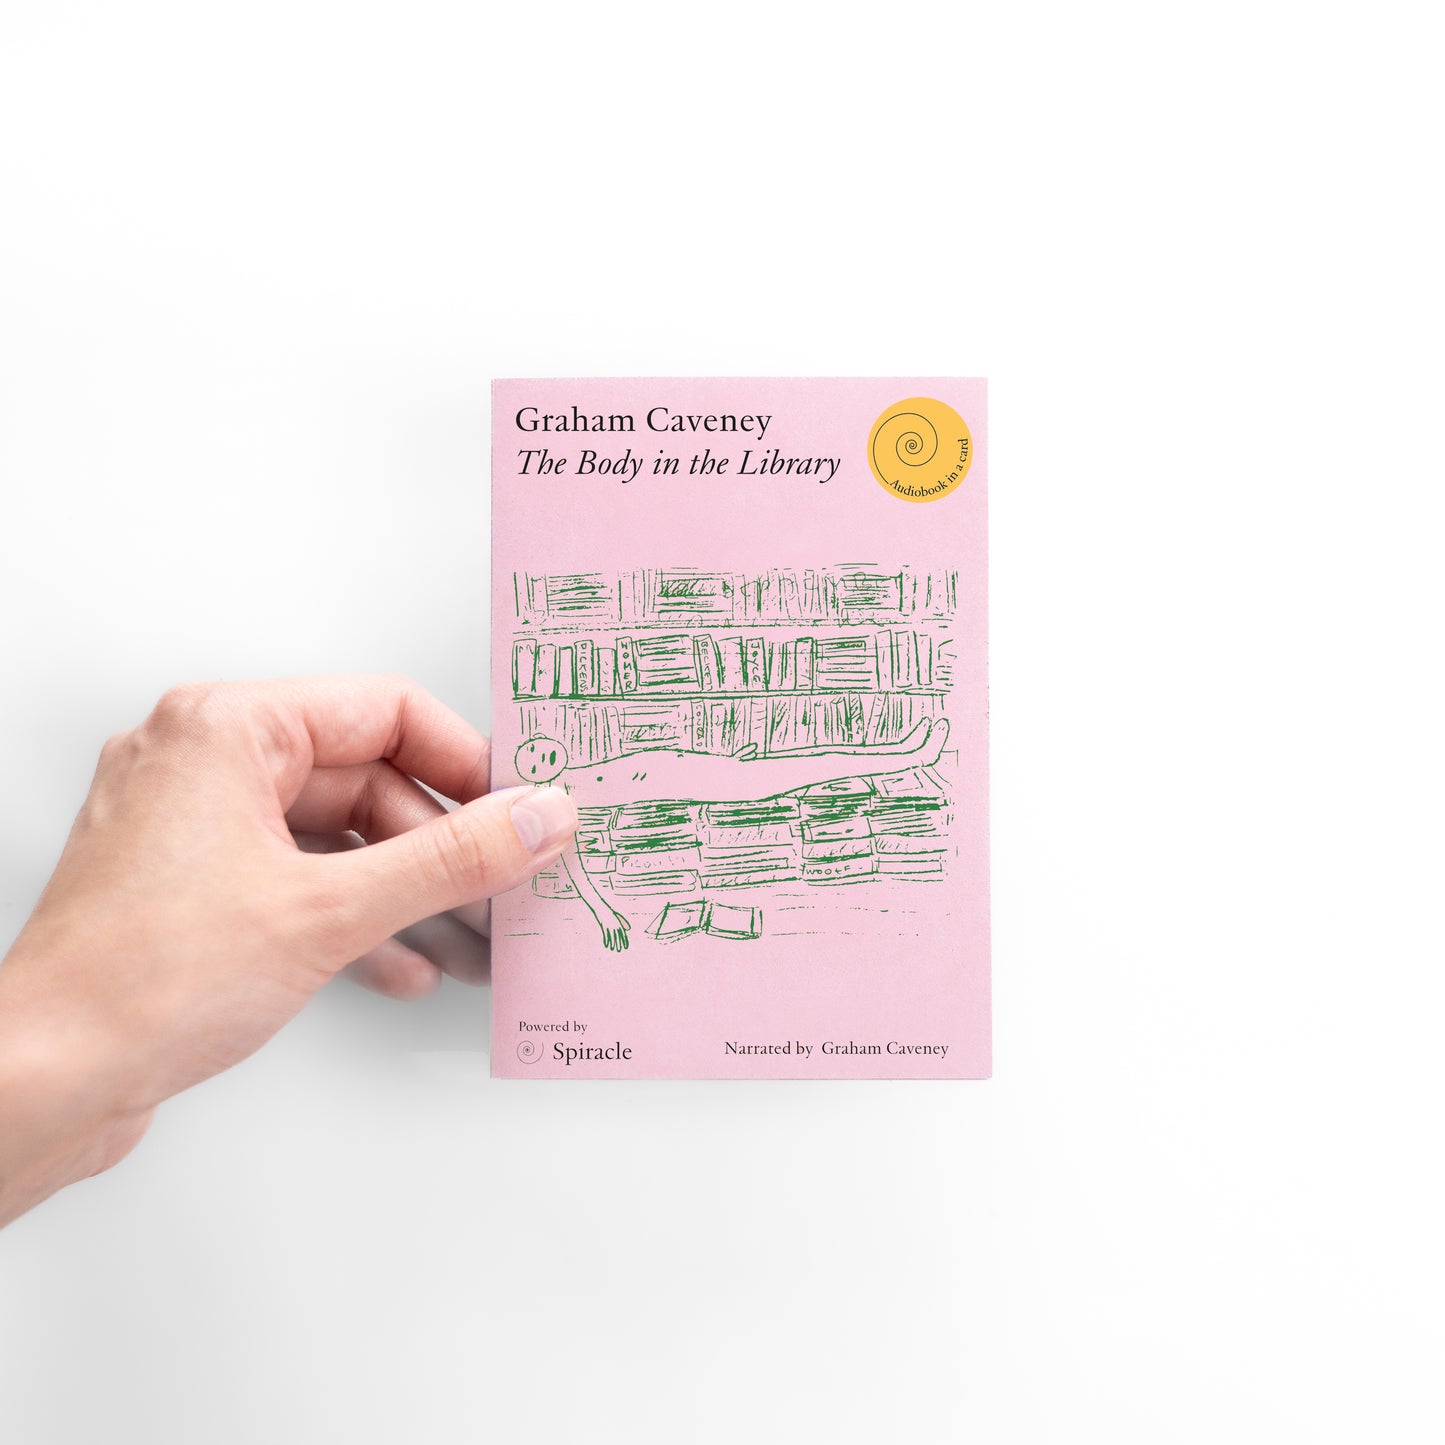 Graham Caveney
The Body in the Library
Audiobook in a card
DICKENS
HOMER
JOYCE
WOOLF
Powered by
Spiracle
Narrated by Graham Caveney